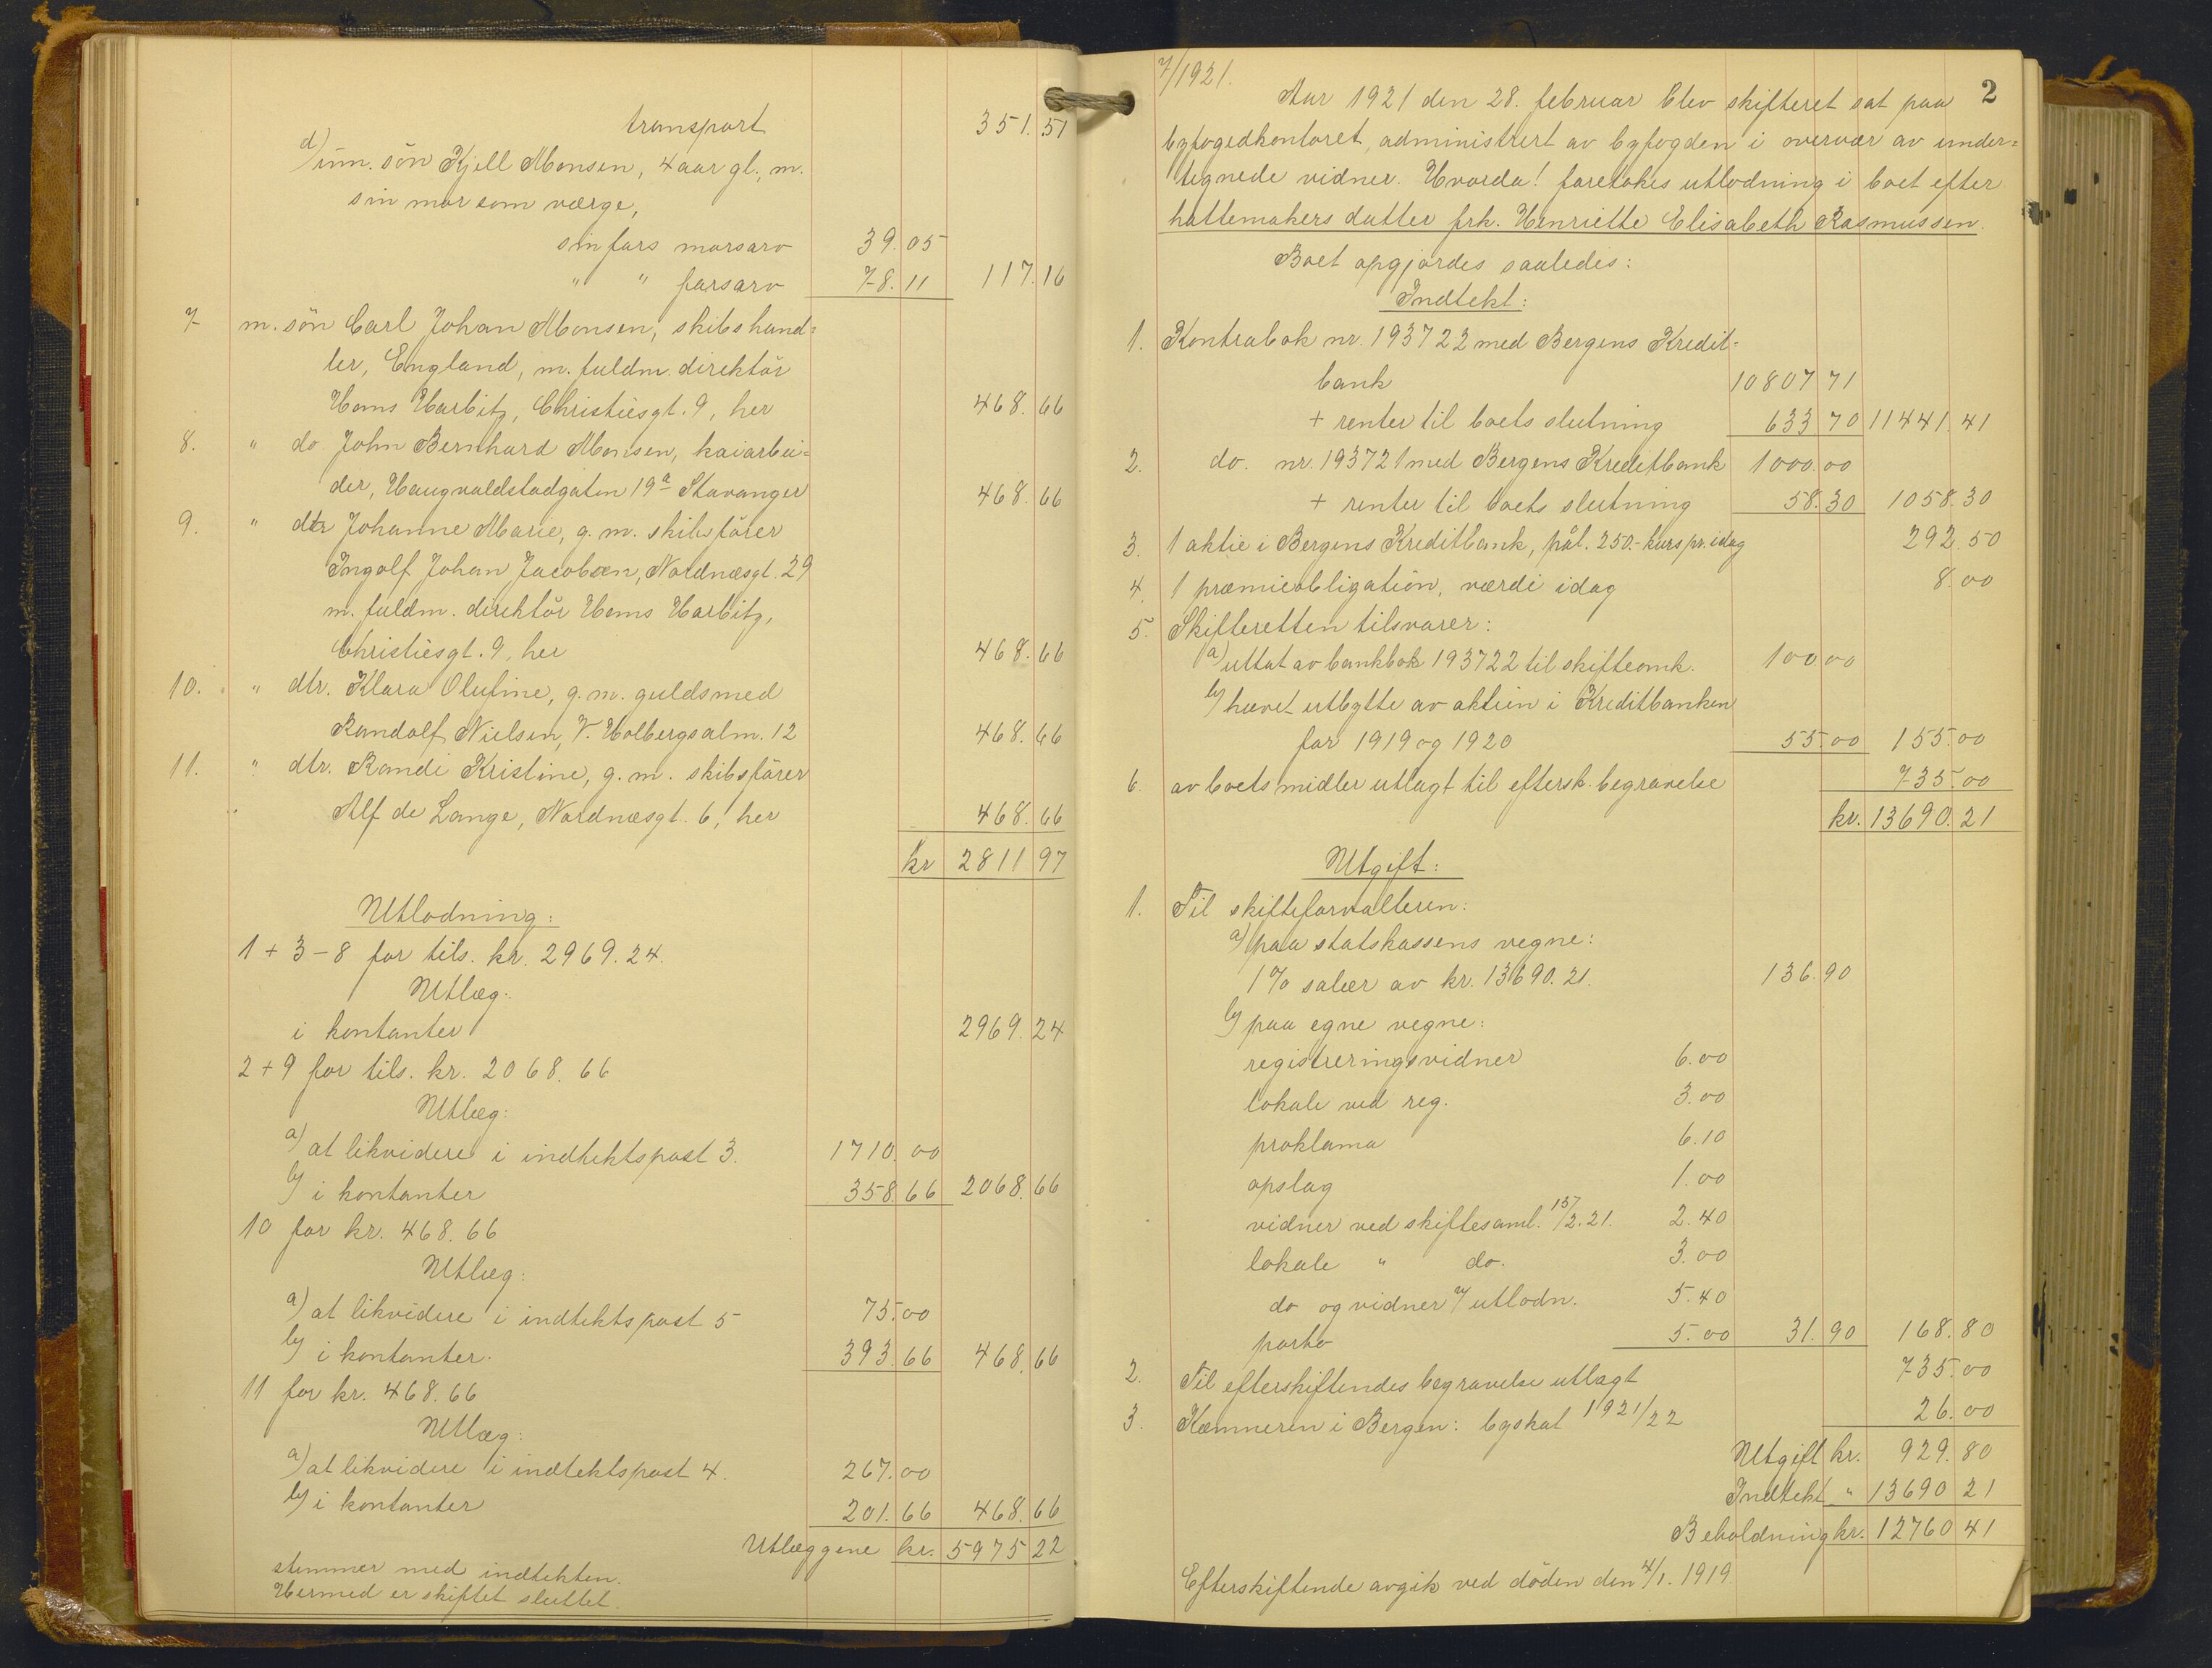 transport 351.51
d) um. sön Kjell Monsen, 4 aar gl., m.
sin mor som værge,
sin fars morsarv 39.05
" " farsarv 78.11 117.16
7 m. sön Carl Johan Monsen, skibshand=
ler, England, m. fuldm. direktör
Hans Harbitz, Christiesgt. 9, her 468.66
8. " do. John Bernhard Monsen, kaiarbei=
der, Haugvaldstadgaten 19a Stavanger 468.66
9. " dtr Johanne Marie, g. m. skibsförer
Ingolf Johan Jacobsen, Nordnæsgt. 29
m. fuldm. direktör Hans Harbitz,
Christiesgt. 9, her 468.66
10. " dtr. Klara Olufine, g. m. guldsmed
Randolf Nielsen, V. Holbergsalm. 12 468.66
11. " dtr. Randi Kristine, g. m. skibsförer
Alf de Lange, Nordnæsgt. 6, her 468.66
kr 2811 97
Utlodning:
1 + 3-8 for tils. kr. 2969.24.
Utlæg:
i kontanter 2969.24
2 + 9 for tils. kr. 2068.66
Utlæg:
a) at likvidere i indtektspost 3. 1710.00
b) i kontanter 358.66 2068.66
10 for kr. 468.66
Utlæg:
a) at likvidere i indtektspost 5 75.00
b) i kontanter. 393.66 468.66
11 for kr. 468.66
Utlæg:
a) at likvidere i indtektspost 4. 267.00
b) i kontanter 201.66 468.66
Utlæggene kr. 5975 22
stemmer med indtekten.
Hermed er skiftet sluttet.
7/1921.
2
Aar 1921 den 28. februar blev skifteret sat paa
byfogedkontoret, administrert av byfogden i overvær av under=
tegnede vidner. Hvorda! foretokes utlodning i boet efter
hattemakers datter frk. Henriette Elisabeth Rasmussen.
Boet opgjordes saaledes:
Indtekt:
1. Kontrabok nr. 193722 med Bergens Kredit=
bank 10807 71
+ renter til boets slutning 633 70 11441.41
2. do. nr. 193721 med Bergens Kreditbank 1000.00
+ renter til boets slutning 58.30 1058.30
3. 1 aktie i Bergens Kreditbank, pål. 250.- kurs pr. idag 292.50
4. 1 præmieobligation, værdi idag 8.00
5. Skifteretten tilsvarer:
a) uttat av bankbok 193722 til skifteomk. 100.00
b) hævet utbytte av aktien i Kreditbanken
for 1919 og 1920 55.00 155.00
6. av boets midler utlagt til eftersk. begravelse 735.00
kr. 13690.21
Utgift:
1. Til skifteforvalteren:
a) paa statskassens vegne:
1% salær av kr. 13690.21. 136.90
b) paa egne vegne:
registreringsvidner 6.00
lokale ved reg. 3.00
proklama 6.10
opslag 1.00
vidner ved skiftesaml. 15/2.21. 2.40
lokale " do. 3.00
do og vidner v/ utlodn. 5.40
porto 5.00 31.90 168.80
2. Til efterskiftendes begravelse utlagt 735.00
3. Kæmneren i Bergen: byskat 1921/22 26.00
Utgift kr. 929.80
Indtekt " 13690 21
Beholdning kr. 12760 41
Efterskiftende avgik ved döden den 4/1. 1919.